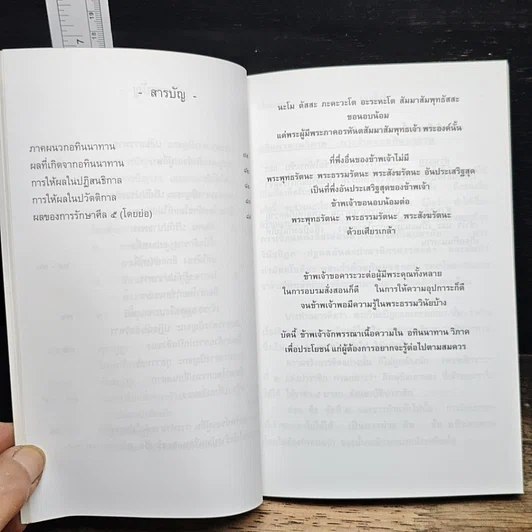 - สารบัญ -
ภาคผนวกอทินนาทาน
ผลที่เกิดจากอทินนาทาน
การให้ผลในปฏิสนธิกาล
การให้ผลในปวัตติกาล
ผลของการรักษาศีล ๕ (โดยย่อ)
นะโม ตัสสะ ภะคะวะโต อะระหะโต สัมมาสัมพุทธัสสะ
ขอนอบน้อม
แด่พระผู้มีพระภาคอรหันตสัมมาสัมพุทธเจ้า พระองค์นั้น
ที่พึ่งอื่นของข้าพเจ้าไม่มี
พระพุทธรัตนะ พระธรรมรัตนะ พระสังฆรัตนะ อันประเสริฐสุด
เป็นที่พึ่งอันประเสริฐสุดของข้าพเจ้า
ข้าพเจ้าขอนอบน้อมต่อ
พระพุทธรัตนะ พระธรรมรัตนะ พระสังฆรัตนะ
ด้วยเศียรเกล้า
ข้าพเจ้าขอคารวะต่อผู้มีพระคุณทั้งหลาย
ในการอบรมสั่งสอนก็ดี ในการให้ความอุปการะก็ดี
จนข้าพเจ้าพอมีความรู้ในพระธรรมวินัยบ้าง
บัดนี้ ข้าพเจ้าจักพรรณาเนื้อความใน อทินนาทาน วิภาค
เพื่อประโยชน์ แก่ผู้ต้องการอยากจะรู้ต่อไปตามสมควร